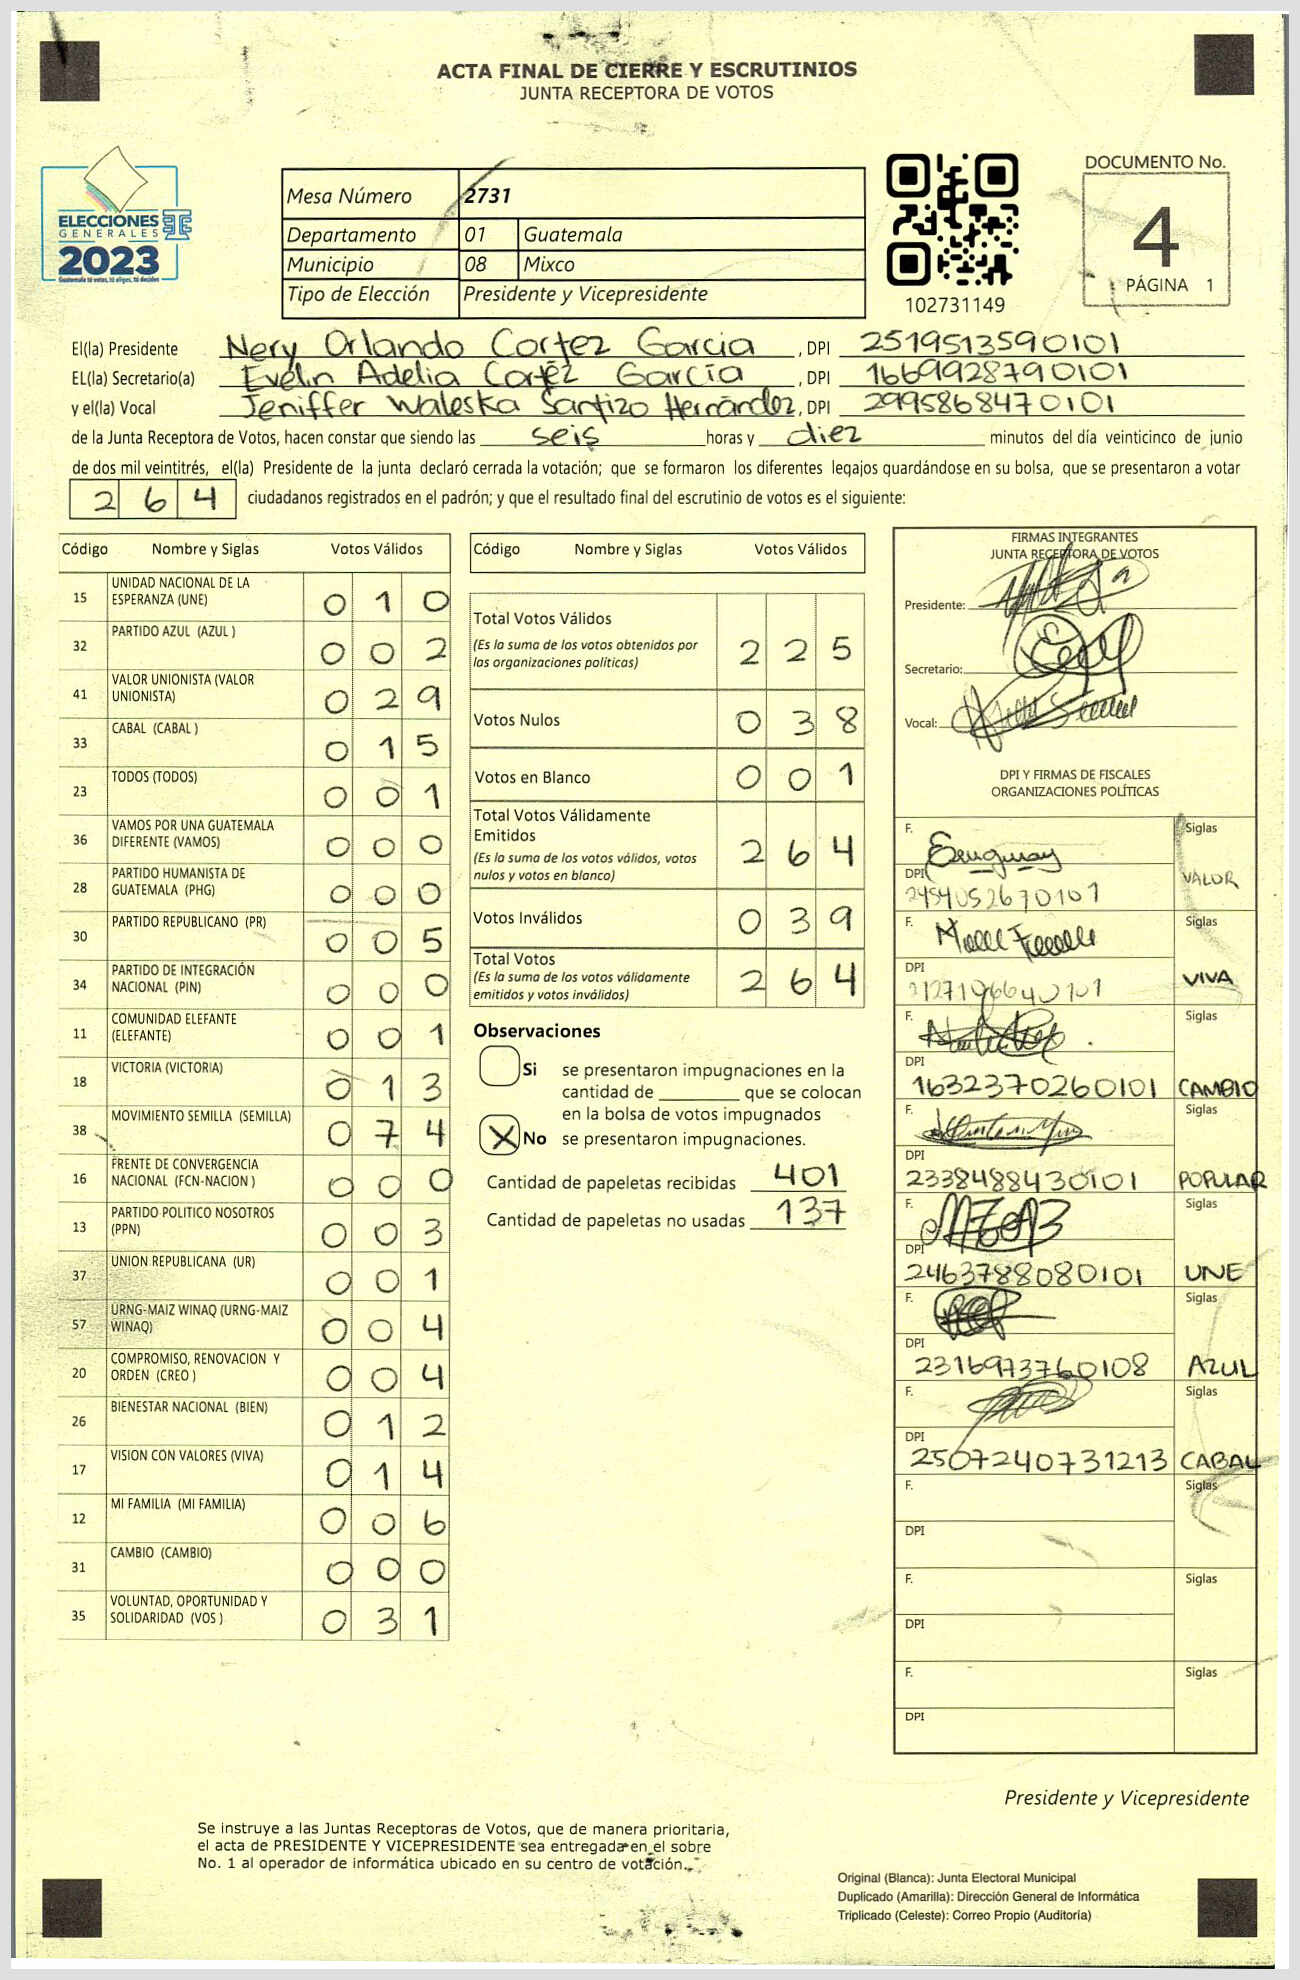 ACTA FINAL DE CIERRE Y ESCRUTINIOS
JUNTA RECEPTORA DE VOTOS
ELECCIONES
GENERALES
2023
Guatemala tú votas, tú eliges, tú decides
Mesa Número 2731
Departamento 01 Guatemala
Municipio 08 Mixco
Tipo de Elección Presidente y Vicepresidente
102731149
DOCUMENTO No.
4
PÁGINA 1
El(la) Presidente Nery Orlando Cortez Garcia, DPI 2519513590101
EL(la) Secretario(a) Evelin Adelia Cortéz García, DPI 1669928790101
y el(la) Vocal Jeniffer Waleska Santizo Hernández, DPI 2995868470101
de la Junta Receptora de Votos, hacen constar que siendo las seis horas y diez minutos del día veinticinco de junio
de dos mil veintitrés, el(la) Presidente de la junta declaró cerrada la votación; que se formaron los diferentes legajos guardándose en su bolsa, que se presentaron a votar
264 ciudadanos registrados en el padrón; y que el resultado final del escrutinio de votos es el siguiente:
Código Nombre y Siglas Votos Válidos
15 UNIDAD NACIONAL DE LA ESPERANZA (UNE) 010
32 PARTIDO AZUL (AZUL ) 002
41 VALOR UNIONISTA (VALOR UNIONISTA) 029
33 CABAL (CABAL ) 015
23 TODOS (TODOS) 001
36 VAMOS POR UNA GUATEMALA DIFERENTE (VAMOS) 000
28 PARTIDO HUMANISTA DE GUATEMALA (PHG) 000
30 PARTIDO REPUBLICANO (PR) 005
34 PARTIDO DE INTEGRACIÓN NACIONAL (PIN) 000
11 COMUNIDAD ELEFANTE (ELEFANTE) 001
18 VICTORIA (VICTORIA) 013
38 MOVIMIENTO SEMILLA (SEMILLA) 074
16 FRENTE DE CONVERGENCIA NACIONAL (FCN-NACION ) 000
13 PARTIDO POLITICO NOSOTROS (PPN) 003
37 UNION REPUBLICANA (UR) 001
57 URNG-MAIZ WINAQ (URNG-MAIZ WINAQ) 004
20 COMPROMISO, RENOVACION Y ORDEN (CREO ) 004
26 BIENESTAR NACIONAL (BIEN) 012
17 VISION CON VALORES (VIVA) 014
12 MI FAMILIA (MI FAMILIA) 006
31 CAMBIO (CAMBIO) 000
35 VOLUNTAD, OPORTUNIDAD Y SOLIDARIDAD (VOS ) 031
Código Nombre y Siglas Votos Válidos
Total Votos Válidos
(Es la suma de los votos obtenidos por las organizaciones políticas) 225
Votos Nulos 038
Votos en Blanco 001
Total Votos Válidamente Emitidos
(Es la suma de los votos válidos, votos nulos y votos en blanco) 264
Votos Inválidos 039
Total Votos
(Es la suma de los votos válidamente emitidos y votos inválidos) 264
Observaciones
Si se presentaron impugnaciones en la
cantidad de ________ que se colocan
en la bolsa de votos impugnados
X No se presentaron impugnaciones.
Cantidad de papeletas recibidas 401
Cantidad de papeletas no usadas 137
FIRMAS INTEGRANTES
JUNTA RECEPTORA DE VOTOS
Presidente:
Secretario:
Vocal:
DPI Y FIRMAS DE FISCALES
ORGANIZACIONES POLÍTICAS
F. Siglas
DPI VALOR
2454052670101
F. Siglas
DPI VIVA
F. Siglas
DPI
1632370260101 CAMBIO
F. Siglas
DPI
2338488430101 POPULAR
F. Siglas
DPI
2463788080101 UNE
F. Siglas
DPI
2316973760108 AZUL
F. Siglas
DPI
2507240731213 CABAL
F. Siglas
DPI
F. Siglas
DPI
F. Siglas
DPI
Presidente y Vicepresidente
Se instruye a las Juntas Receptoras de Votos, que de manera prioritaria,
el acta de PRESIDENTE Y VICEPRESIDENTE sea entregada en el sobre
No. 1 al operador de informática ubicado en su centro de votación.
Original (Blanca): Junta Electoral Municipal
Duplicado (Amarilla): Dirección General de Informática
Triplicado (Celeste): Correo Propio (Auditoría)